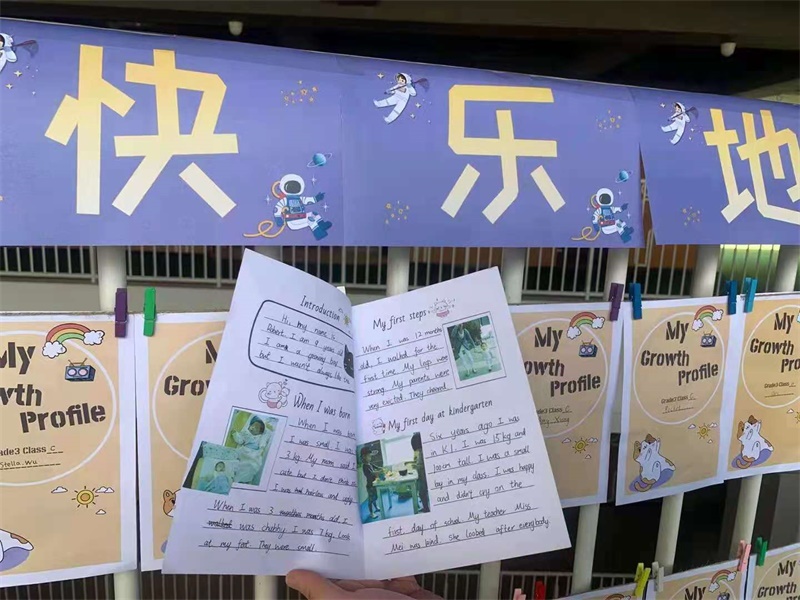 快乐地
Introduction
Hi, my name is
Albert. I am 9 years old
I am a growing boy
but I wasn't always like this
When I was born
When I was
I was small I was
3 kg. My mom said I
cute but I don't think so
I was hairless and ugly
When I was 3 months old I
was chubby I was 7 kg. Look
at my feet They were small
My first steps
When I was 12 months
old, I walked for the
first time My legs were
strong. My parents were
very excited They cheered
My first day at kindergarten
Six years ago I was
in K1. I was 15 kg and
tall I was a small
boy in my class. I was happy
and didn't cry on the
first day of school My teacher Miss
Mei was kind. She looked after everybody.
My
Growth
Profile
Grade3 Class C
Stella.Wu
My
Growth
My
Growth
Profile
My
Growth
Profile
Grade3 Class C
My
Growth
Profile
Grade3 Class C
My
My